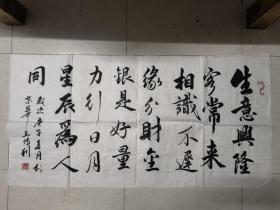 生意興隆
客常来
相識不遲
缘分財金
銀是好量
力行日月
星辰爲人
同
歲次庚子夏月於
京華王偉利